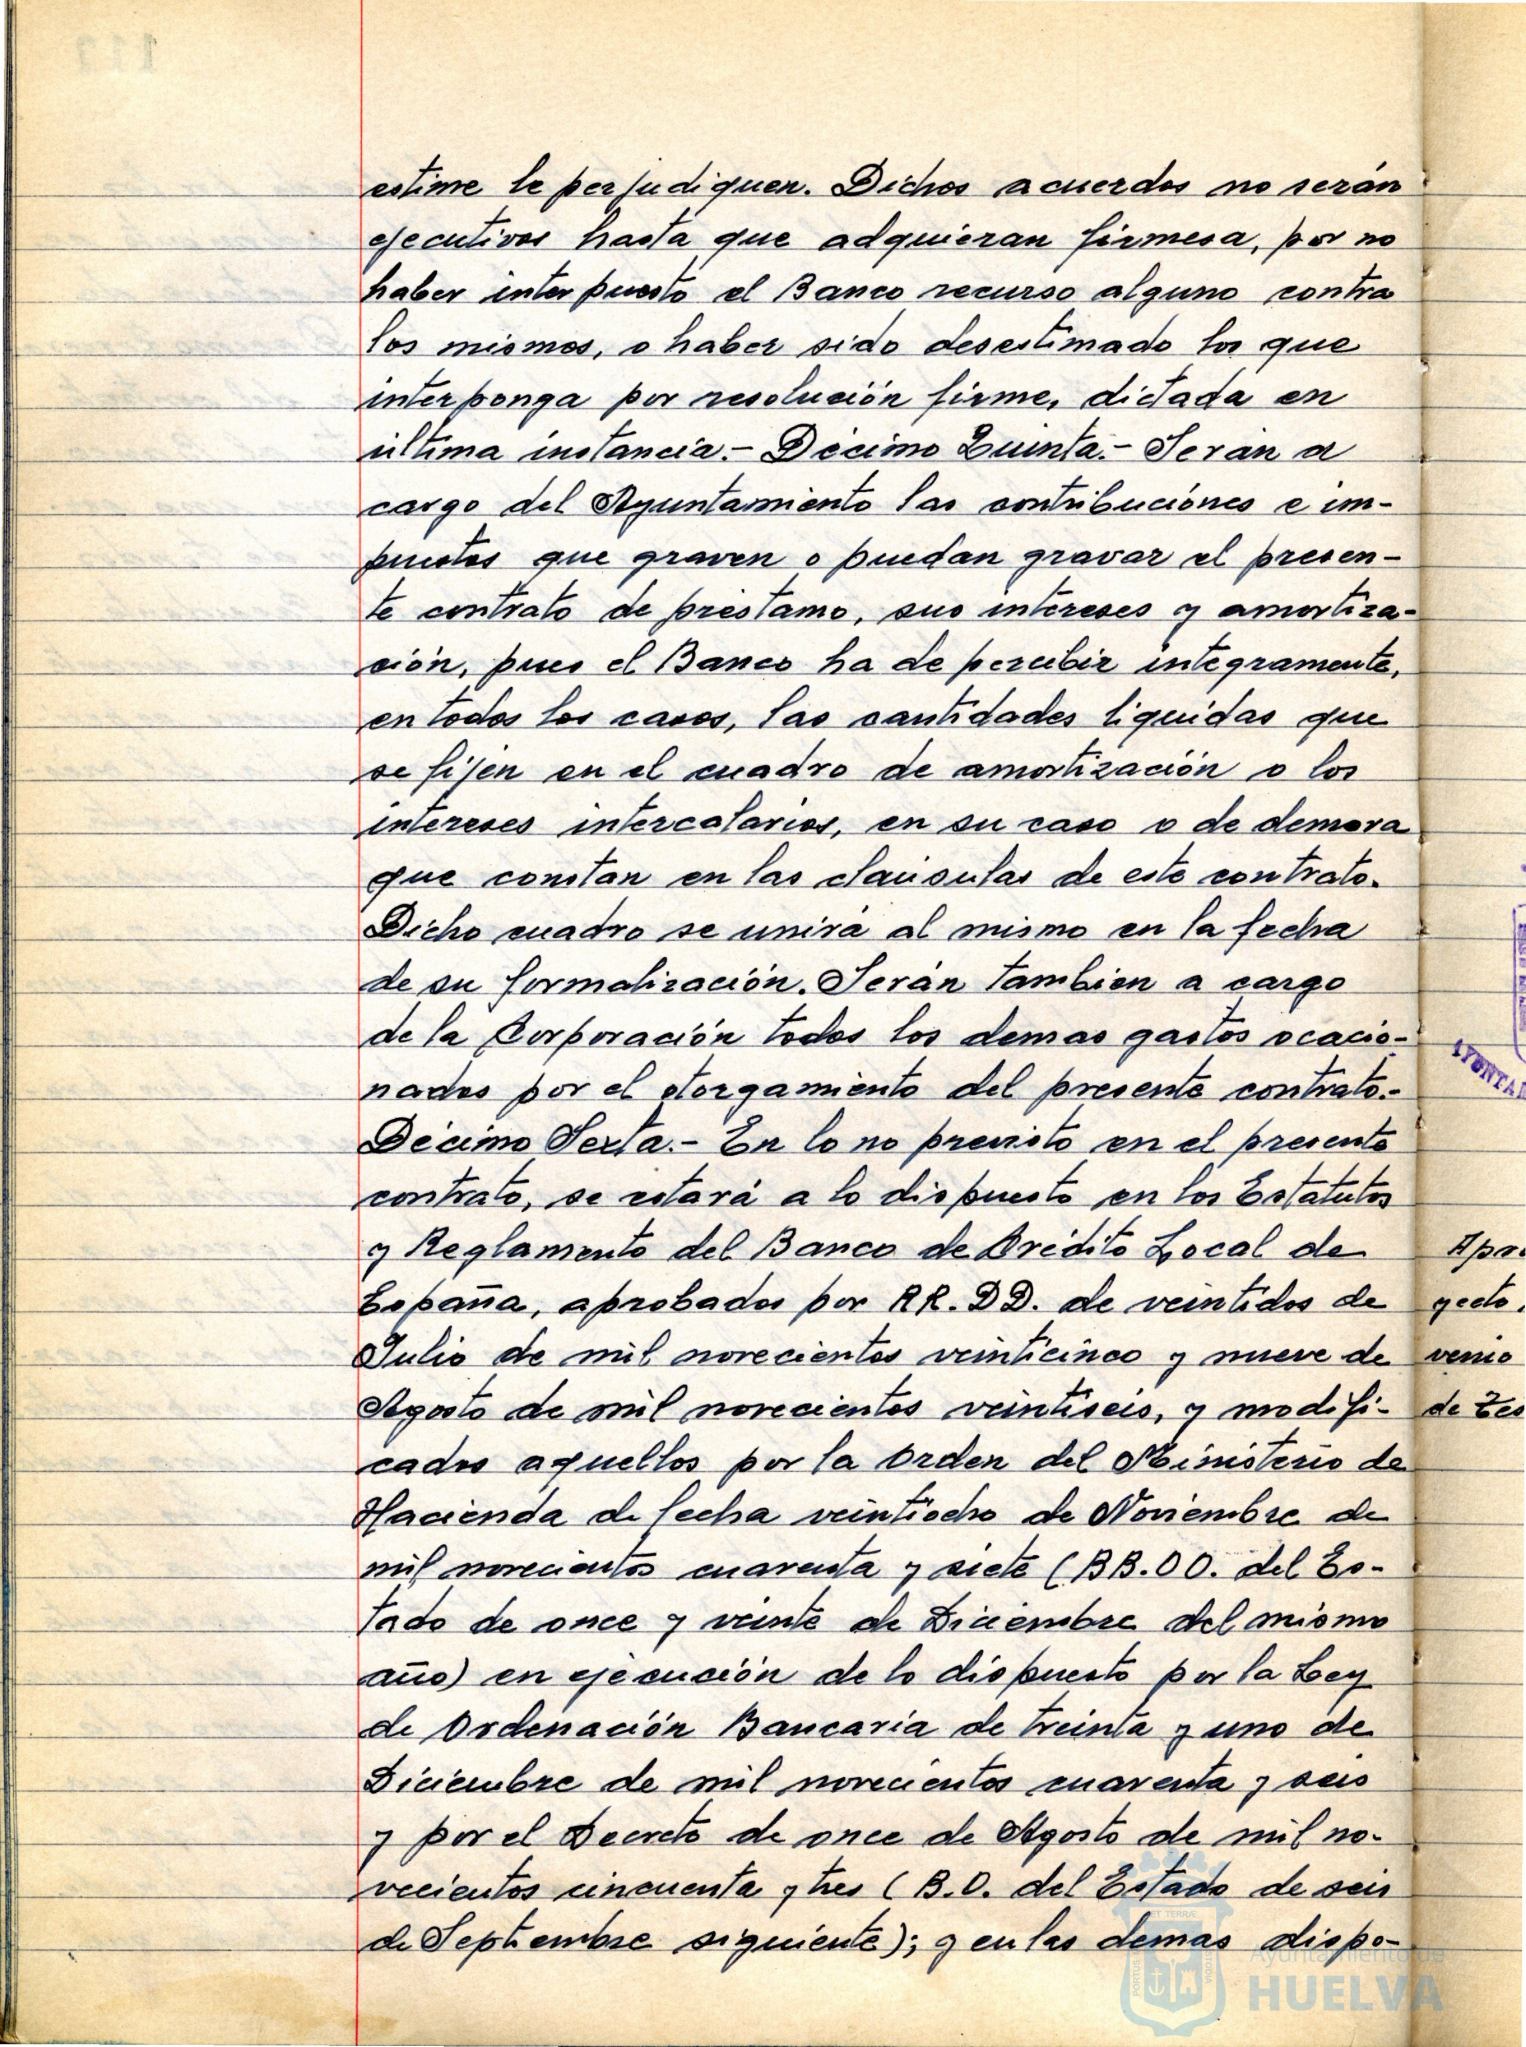 estime le perjudiquen. Dichos acuerdos no serán
ejecutivos hasta que adquieran firmesa, por no
haber interpuesto el Banco recurso alguno contra
los mismos, o haber sido desestimado los que
interponga por resolución firme, dictada en
última instancia.- Décimo Quinta.- Serán a
cargo del Ayuntamiento las contribuciones e im-
puestos que graven o puedan gravar el presen-
te contrato de préstamo, sus intereses y amortiza-
ción, pues el Banco ha de percibir integramente,
en todos los casos, las cantidades liquidas que
se fijen en el cuadro de amortización o los
intereses intercalarios, en su caso o de demora
que constan en las claúsulas de este contrato.
Dicho cuadro se unirá al mismo en la fecha
de su formalización. Serán tambien a cargo
de la Corporación todos los demas gastos ocacio-
nados por el otorgamiento del presente contrato.-
Décimo Sexta.- En lo no previsto en el presente
contrato, se estará a lo dispuesto en los Estatutos
y Reglamento del Banco de Crédito Local de
España, aprobados por RR.DD. de veintidos de
Julio de mil novecientos veinticinco y nueve de
Agosto de mil novecientos veintiseis, y modifi-
cados aquellos por la Orden del Ministerio de
Hacienda de fecha veintiocho de Noviembre de
mil novecientos cuarenta y siete (BB.OO. del Es-
tado de once y veinte de Diciembre del mismo
año) en ejecución de lo dispuesto por la Ley
de Ordenación Bancaria de treinta y uno de
Diciembre de mil novecientos cuarenta y seis
y por el Decreto de once de Agosto de mil no-
vecientos cincuenta y tres (B.O. del Estado de seis
de Septiembre siguiente); y en las demas dispo-
Ayuntamiento de
HUELVA